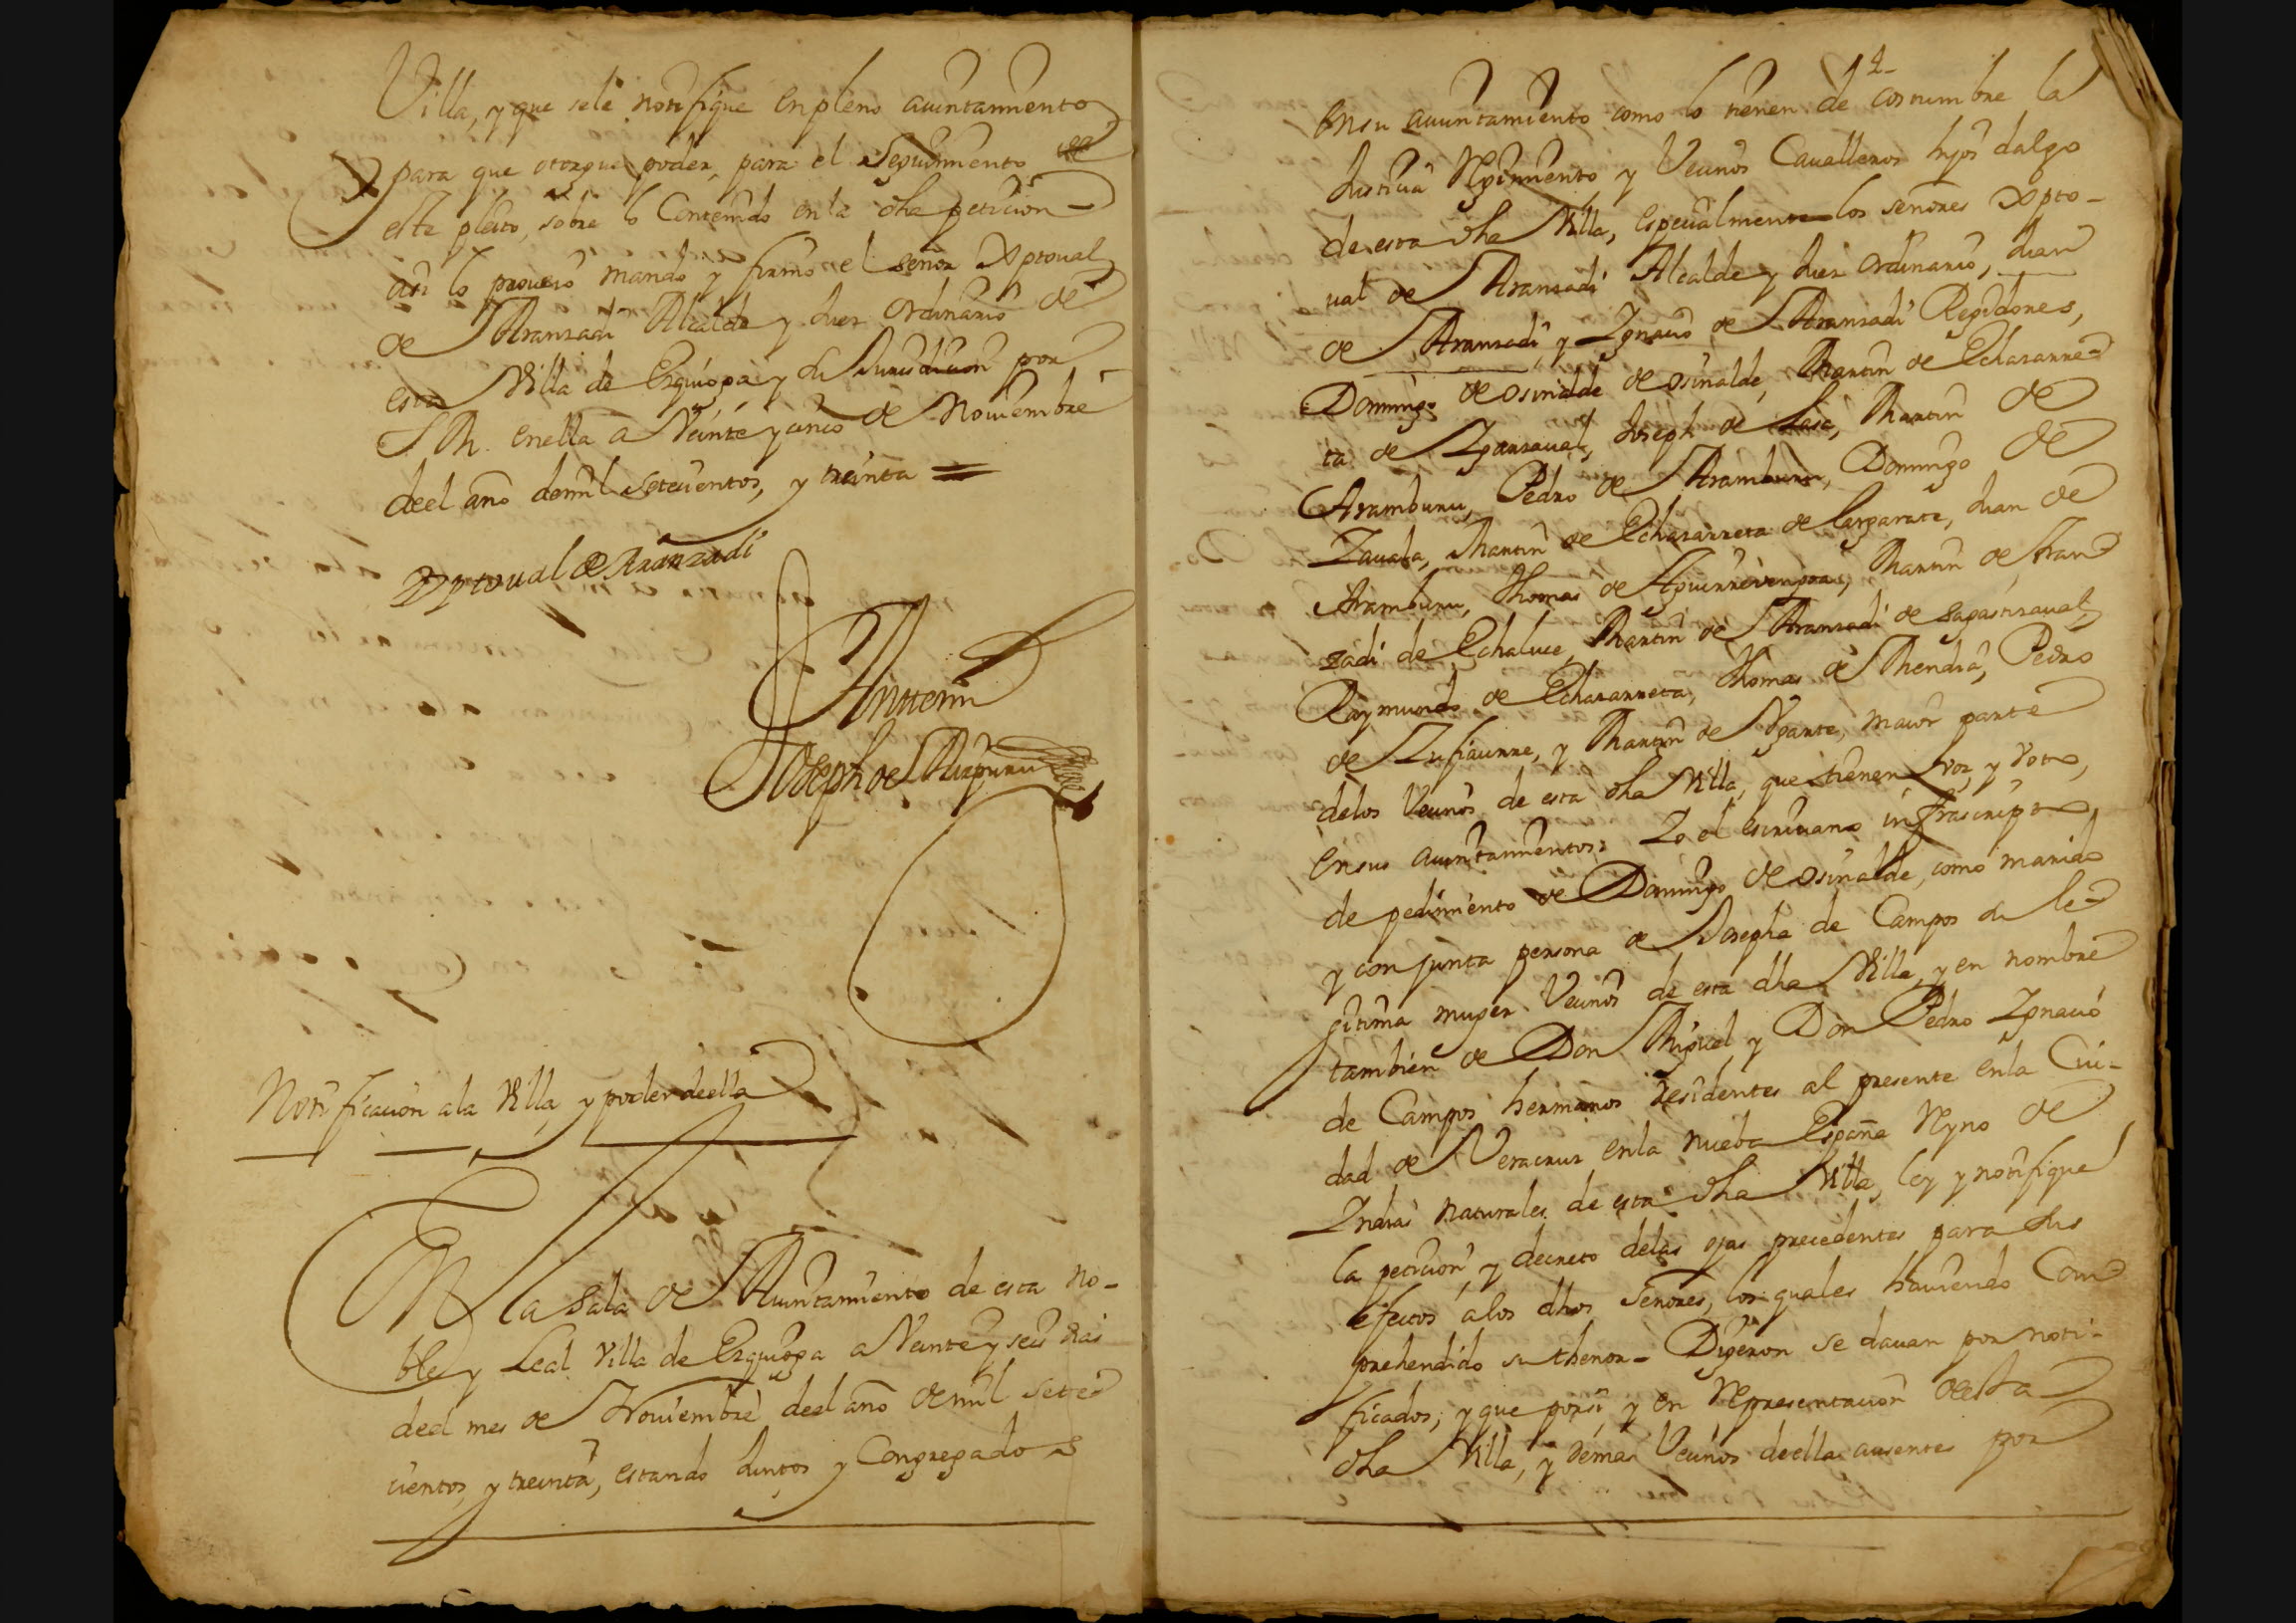 Villa, y que sele notifique en pleno aiuntamiento
para que otorgue poder, para el seguimiento de
este pleito, sobre lo Contenido en la dha peticion -
assi lo proveio mando y firmo el señor Xptoual
de Aranzadi Alcalde y Juez Ordinario de
esta Villa de Ezquioga y su Jurisdicion por
S. M. en ella a Veinte y cinco de Noviembre
deel año de mil setecientos, y treinta =
Xptoual de Aranzadi
Ante mi
Joseph de Aizpuru
Notificacion a la Villa, y poder de ella
En la Sala de Aiuntamiento de esta No-
ble y Leal Villa de Ezquioga a Veinte y seis dias
deel mes de Noviembre deel año de mil sete
cientos, y treinta, estando Juntos y Congregados
4
en su aiuntamiento como lo tienen de costumbre la
Justicia Regimiento, y Vecinos Caualleros hijos dalgo
de esta dha Villa, especialmente los señores Xpto-
ual de Aranzadi Alcalde y Juez ordinario, Juan
de Aranzadi, y Ignacio de Aranzadi Regidores,
Domingo de Osinalde de Osinalde, Martin de Echazarre
ta de Igarzaual, Joseph de Lasa, Martin de
Aramburu, Pedro de Aramburu, Domingo de
Zauala, Martin de Echazarreta de Cargarate, Juan de
Aramburu, Thomas de Aguirrevengoa, Martin de Aran
zadi de Echaluce, Martin de Aranzadi de Sagastizaual,
Raymundo de Echazarreta, Thomas de Mendia, Pedro
de Zufiaurre, y Martin de Ugarte, maior parte
de los Vecinos de esta dha Villa, que tienen voz, y voto,
en sus aiuntamientos: Yo el escriuano infrascripto
de pedimiento de Domingo de Osinalde, como marido
y conjunta persona de Josepha de Campos su le
gitima muger Vecinos de esta dha Villa, y en nombre
tambien de Don Miguel, y Don Pedro Ignacio
de Campos hermanos residentes al presente en la Ciu-
dad de Veracruz en la nueba España Reyno de
Indias naturales de esta dha Villa, ley y notifique
la peticion, y decreto de las ojas precedentes para sus
efectos a los dhos Señores, los quales hauiendo Com
prehendido su thenor - Digeron se dauan por noti-
ficados; y que por si, y en representacion de esta
dha Villa, y demas Vecinos de ella ausentes por